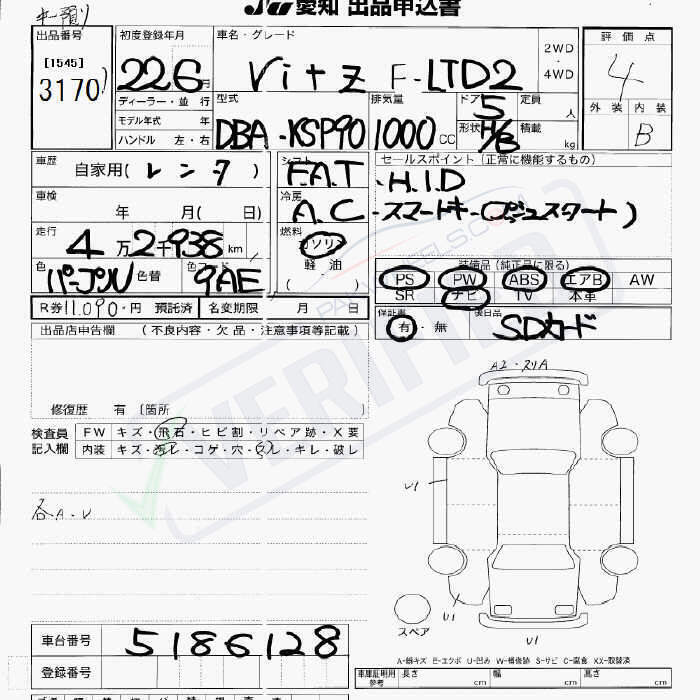 キー預り
JU 愛知 出品申込書
出品番号
[1545]
3170
初度登録年月
22 6 月
ディーラー・並 行
モデル年式 年
ハンドル 左・右
車名・グレード
Vitz F-LTD2
2WD
・
4WD
型式
DBA-KSP90
排気量
1000 CC
ドア
5
定員
人
形状
H/B
積載
kg
評 価 点
4
外 装 内 装
B
車歴
自家用( レンタ )
車検
年 月( 日)
走行
4万2千938 km
色
パープル
色替
色コード
9AE
シフト
F.A.T
冷房
A.C
燃料
ガソリン
軽 油
( )
セールスポイント (正常に機能するもの)
・H.I.D
・スマートキー(プッシュスタート)
装備品 (純正品に限る)
PS PW ABS エアB AW
SR ナビ TV 本革
R券 11.090-円 預託済 名変期限 月 日
保証書
有・無
後日品
SDカード
出品店申告欄 (不良内容・欠品・注意事項等記載)
修復歴 有 〔箇所
検査員
記入欄
FW キズ・飛石・ヒビ割・リペア跡・X要
内装 キズ・汚レ・コゲ・穴・スレ・キレ・破レ
各A.U
A2・スリA
U1
U1
U1
スペア
A-線キズ E-エクボ U-凹み W-補修跡 S-サビ C-腐食 XX-取替済
車台番号
5186128
登録番号
車庫証明用
参考
長さ cm 幅 cm 高さ cm
VERIFIED